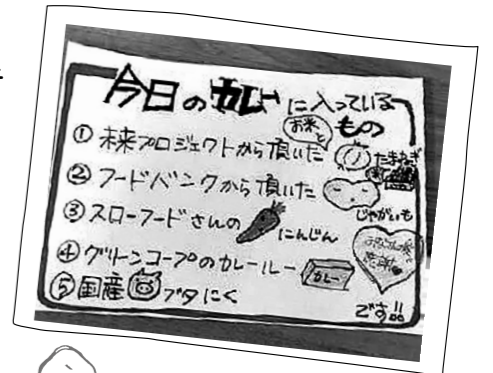 今日のカレーに入っているもの
① 未来プロジェクトから頂いた お米と たまねぎ
② フードバンクから頂いた じゃがいも
③ スローフードさんの にんじん
④ グリーンコープのカレールー カレー
⑤ 国産 ブタにく
です!!